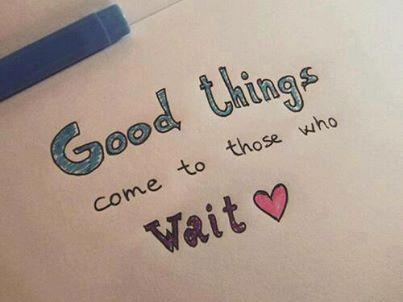 Good things
come to those who
Wait